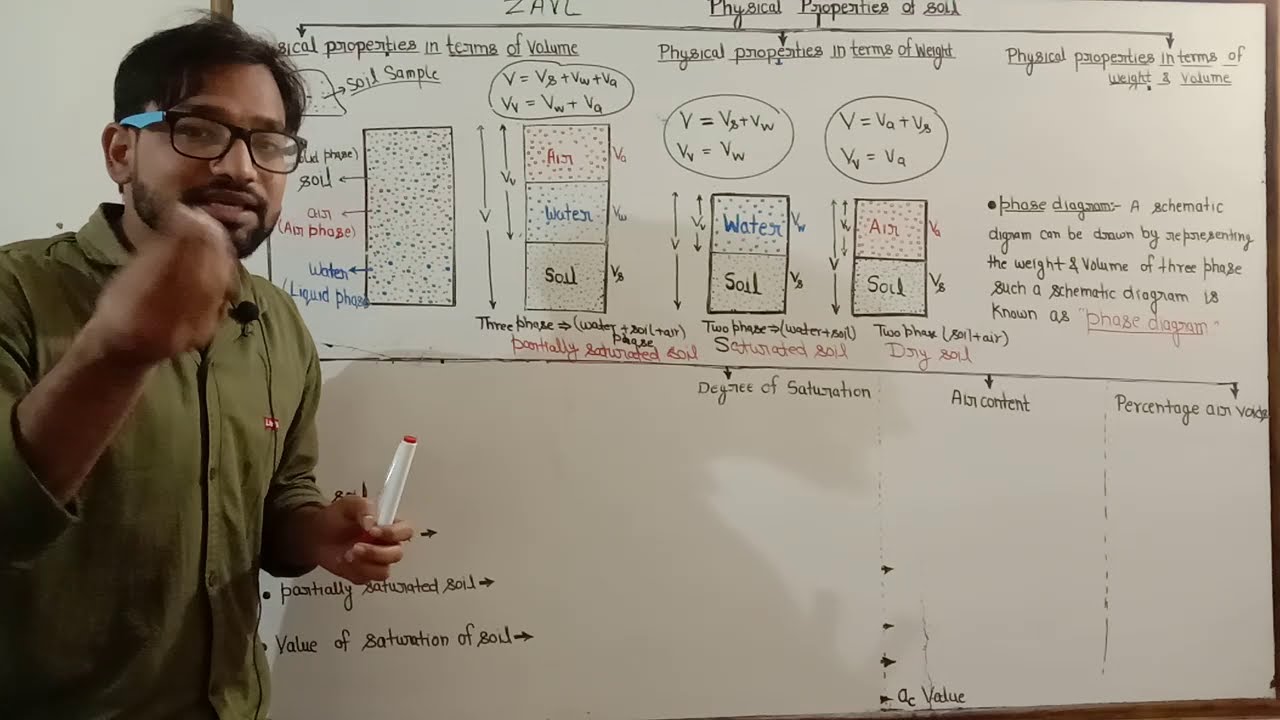 Physical Properties of soil
sical properties in terms of volume
Physical properties in terms of Weight
Physical properties in terms of
weight & volume
Soil Sample
V = Vs + Vw + Va
Vv = Vw + Va
V = Vs + Vw
Vv = Vw
V = Va + Vs
Vv = Va
phase)
soil
air
(Air phase)
Water
(Liquid phase
V
Vv
Air
Va
Water
Vw
Soil
Vs
Water
Vw
Soil
Vs
Air
Va
Soil
Vs
• phase diagram:- A schematic
digram can be drawn by representing
the weight & volume of three phase
such a schematic diagram is
known as "phase diagram"
Three phase ⇒ (water + soil + air)
phase
partially saturated soil
Two phase ⇒ (water + soil)
Saturated soil
Two phase (soil + air)
Dry soil
Degree of Saturation
Air content
Percentage air voids
soil
• partially saturated soil →
• Value of saturation of soil →
ac Value